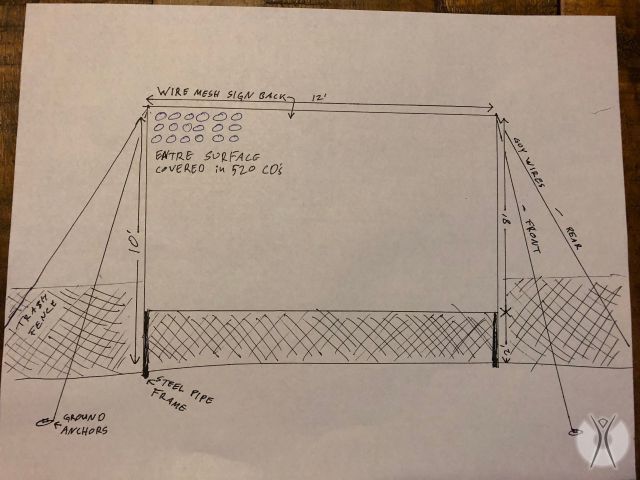 WIRE MESH SIGN BACK
12'
ENTRE SURFACE
COVERED in 520 CD's
10'
8'
2'
GUY WIRES
- FRONT
- REAR
TRASH
FENCE
STEEL PIPE
FRAME
GROUND
ANCHORS